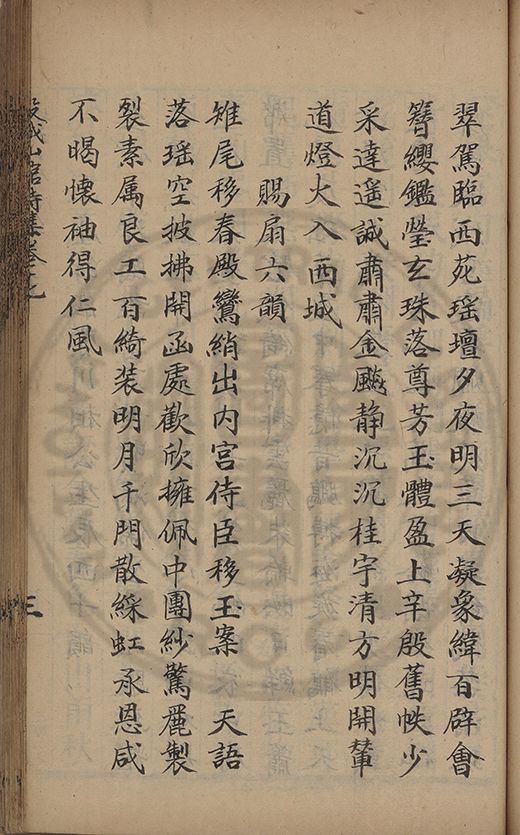 翠駕臨西苑瑶壇夕夜明三天凝象緯百辟會
簪纓鑑瑩玄珠落尊芳玉體盈上辛殷舊帙少
采達遥誠肅肅金飈静沉沉桂宇清方明開輦
道燈火入西城
賜扇六韻
雉尾移春殿鸞綃出内宫侍臣移玉案 天語
落瑶空披拂開函處歡欣擁佩中團紗驚麗製
裂素属良工百綺装明月千門散綵虹承恩咸
不暍懐袖得仁風
山館詩集卷之
三